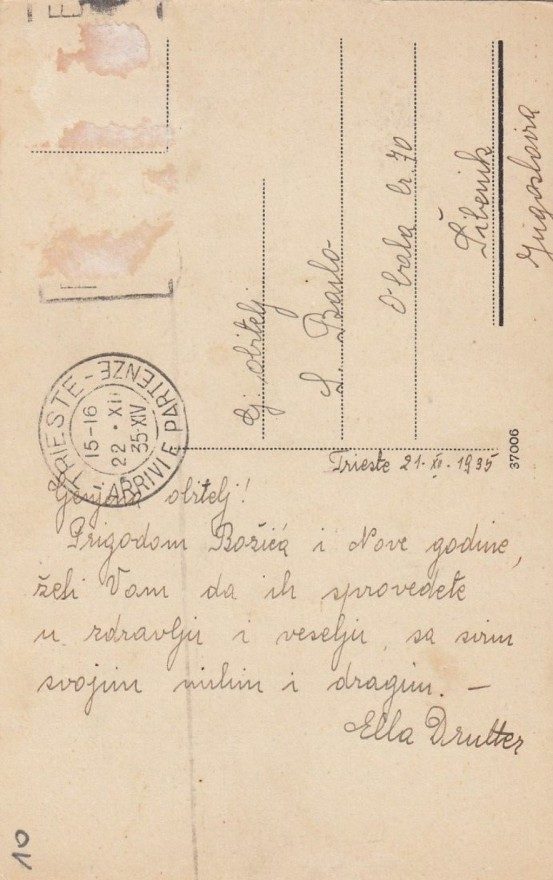 TRIESTE - ARRIVI E PARTENZE
15-16
22 • XII
35-XIV
Cj. obitelj
L. Bailo
Obala br. 70
Šibenik
Jugoslavia
37006
Trieste 21. XII. 1935
Cjenjena obitelj!
Prigodom Božića i Nove godine,
želi Vam da ih sprovedete
u zdravlju i veselju, sa svim
svojim milim i dragim. —
Ella Drutter
10